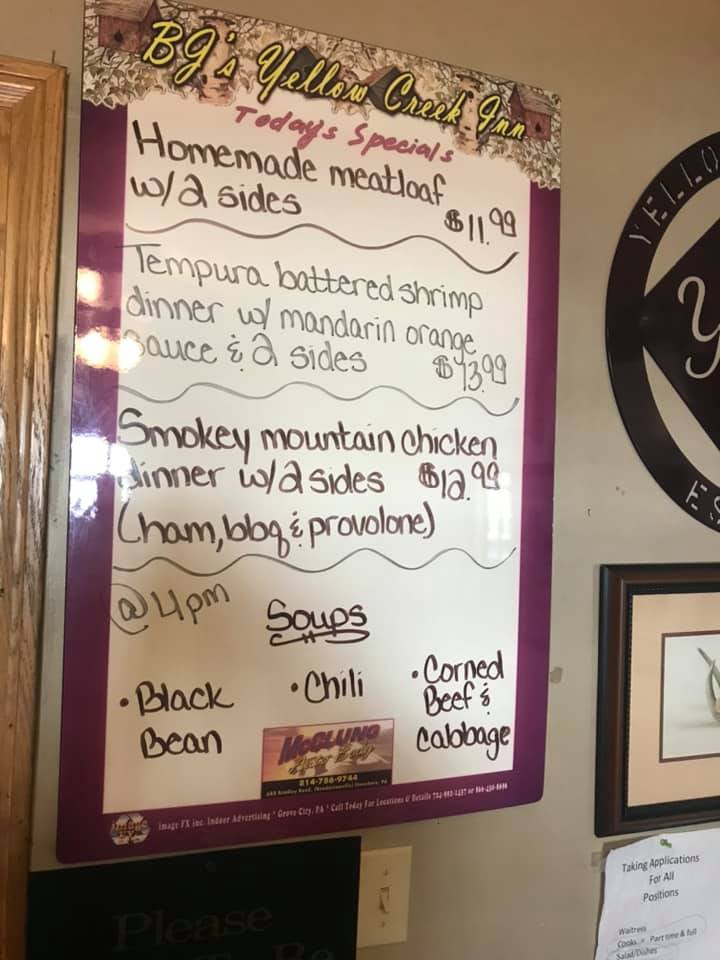 BJ's Yellow Creek Inn
Today's Specials
Homemade meatloaf
w/2 sides
$11.99
Tempura battered shrimp
dinner w/ mandarin orange
Sauce & 2 sides $13.99
Smokey mountain chicken
dinner w/2 sides $12.99
(ham, bbq & provolone)
@4pm
Soups
• Black
Bean
• Chili
• Corned
Beef &
Cabbage
McClung
814-786-9744
image FX inc. Indoor Advertising * Grove City, PA * Call Today For Locations & Details
YELLO
Y
ES
Please
Be
Taking Applications
For All
Positions
Waitress
Cooks - Part time & full
Salad/Dishes